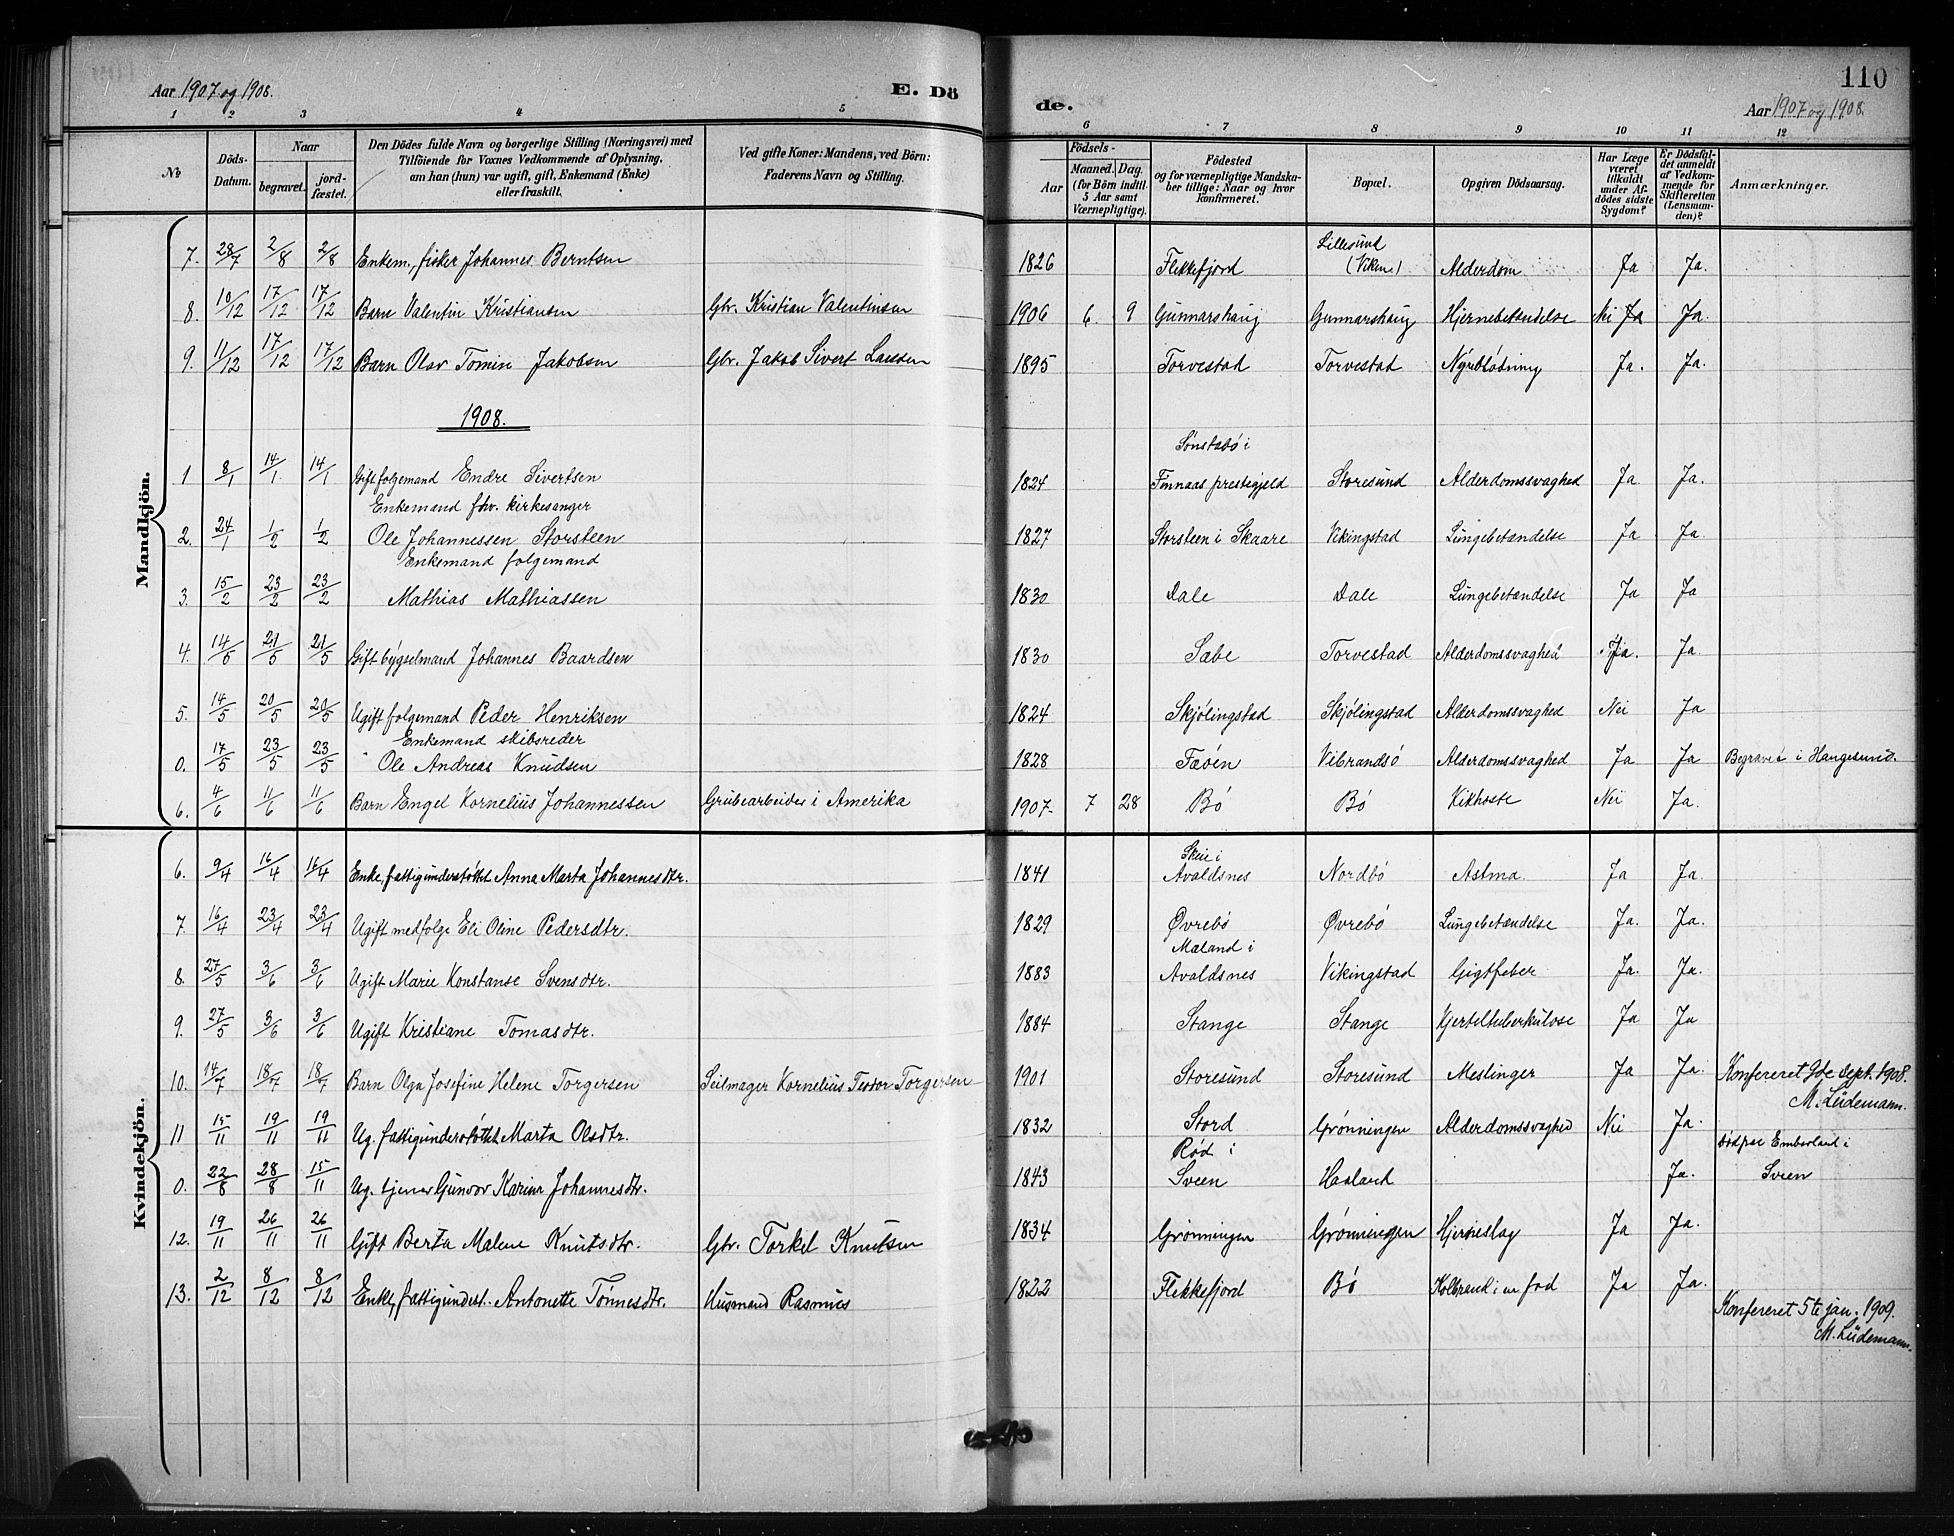 Aar 1907 og 1908.
E. Dö
de.
110
Aar 1907 og 1908.
1 2 3 4 5 6 7 8 9 10 11 12
No
Döds-Datum.
Naar
begravet.
jord-fæstet.
Den Dödes fulde Navn og borgerlige Stilling (Næringsvei) med
Tilföiende for Voxnes Vedkommende af Oplysning,
om han (hun) var ugift, gift, Enkemand (Enke)
eller fraskilt.
Ved gifte Koner: Mandens, ved Börn:
Faderens Navn og Stilling.
Födsels-
Aar
Maaned. Dag.
(for Börn indtil
5 Aar samt
Værnepligtige).
Födested
og for værnepligtige Mandska-
ber tillige: Naar og hvor
konfirmeret.
Bopæl.
Opgiven Dödsaarsag.
Har Læge
været
tilkaldt
under Af-
dödes sidste
Sygdom?
Er Dödsfal-
det anmeldt
af Vedkom-
mende for
Skifteretten
(Lensman-
den)?
Anmærkninger.
Mandkjön.
7. 28/7 2/8 2/8 Enkem., fisker Johannes Berntsen 1826 Flekkefjord Lillesund (Viken) Alderdom Ja Ja.
8. 10/12 17/12 17/12 Barn Valentin Kristiansen Gbr. Kristian Valentinsen 1906 6. 9 Gunnarshaug Gunnarshaug Hjernebetændelse Nei Ja Ja.
9. 11/12 17/12 17/12 Barn Olav Tomin Jakobsen Gbr. Jakob Sivert Larsen 1895 Torvestad Torvestad Nyreblødning Ja. Ja.
1908.
1 8/1 14/1 14/1 Gift folgemand Endre Sivertsen 1824 Sønstabø i Finnaas prestegjeld Storesund Alderdomssvaghed Ja Ja.
Enkemand fhv. kirkesanger
2. 24/1 1/2 1/2 Ole Johannessen Storsteen 1827 Storsteen i Skaare Vikingstad Lungebetændelse Ja Ja.
Enkemand folgemand
3. 15/2 23/2 23/2 Mathias Mathiassen 1830 Dale Dale Lungebetændelse Ja Ja
4. 14/5 21/5 21/5 Gift bygselmand Johannes Baardsen 1830 Sabe Torvestad Alderdomssvaghed Ja. Ja.
5. 14/5 20/5 20/5 Ugift folgemand Peder Henriksen 1824 Skjølingstad Skjølingstad Alderdomssvaghed Nei Ja
Enkemand skibsreder
0. 17/5 23/5 23/5 Ole Andreas Knudsen 1828 Fæøen Vibrandsø Alderdomssvaghed Ja Ja Begravet i Haugesund.
6. 4/6 11/6 11/6 Barn Engel Kornelius Johannessen Grubearbeider i Amerika 1907 7 28 Bø Bø Kikhoste Nei Ja.
Kvindekjön.
6. 9/4 16/4 16/4 Enke, fattigunderstøttet Anna Marta Johannesdtr. 1841 Skeie i Avaldsnes Nordbø Astma. Ja Ja.
7. 16/4 23/4 23/4 Ugift medfolge Eli Oline Pedersdtr. 1829 Øvrebø Øvrebø Lungebetændelse Ja. Ja.
8. 27/5 3/6 3/6 Ugift Marie Konstanse Svensdtr. 1883 Mæland i Avaldsnes Vikingstad Gigtfeber Ja. Ja.
9. 27/5 3/6 3/6 Ugift Kristiane Tomasdtr. 1884 Stange Stange Kjerteltuberkulose Ja Ja
10. 14/7 18/7 18/7 Barn Olga Josefine Helene Torgersen Seilmager Kornelius Teodor Torgersen 1901 Storesund Storesund Meslinger Ja Ja. Konfereret 9de Sept. 1908.
M. Lüdemann.
11 15/11 19/11 19/11 Ug. fattigunderstøttet Marta Olsdtr. 1832 Stord Grønningen Alderdomssvaghed Nei Ja.
0. 22/8 28/8 15/11 Ug. tjener Gunvor Karine Johannesdtr. 1843 Rød i Sveen Haaland Ja. død paa Emberland i
Sveen
12. 19/11 26/11 26/11 Gift Berta Malene Knutsdtr. Gbr. Torkel Knutsen 1834 Grønningen Grønningen Hjerneslag Ja Ja.
13. 2/12 8/12 8/12 Enke, fattigunderst. Antonette Tønnesdtr. Husmand Rasmus 1822 Flekkefjord Bø Kolbrand i en fod Ja Ja.
Konfereret 5te jan. 1909.
M. Lüdemann.